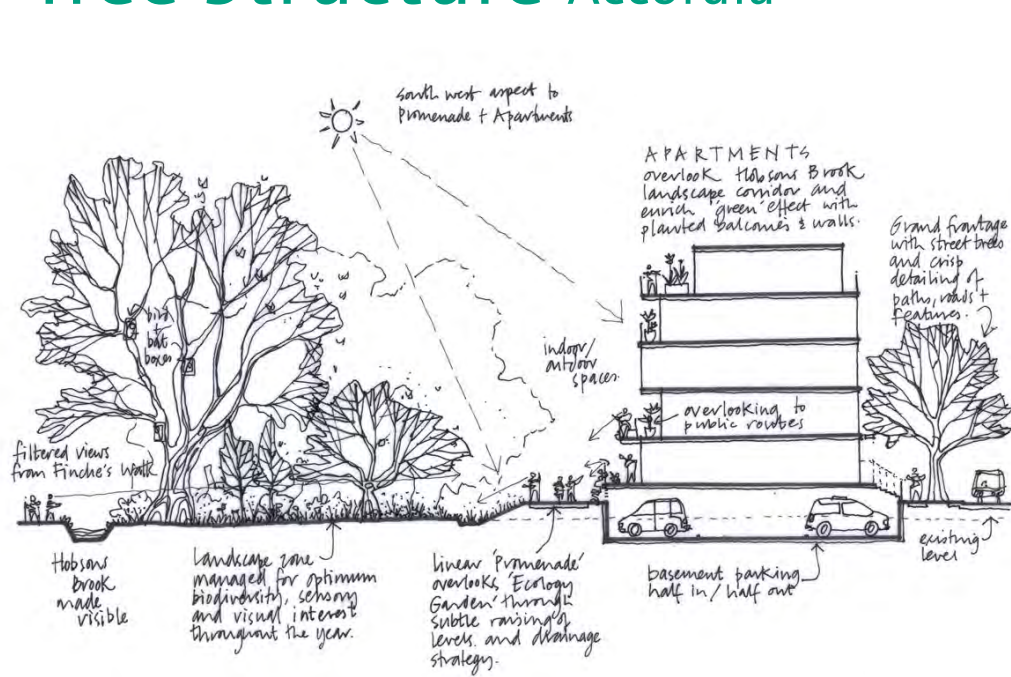 Tree Structure Accordia
South west aspect to
Promenade + Apartments
APARTMENTS
overlook Hobsons Brook
landscape corridor and
enrich 'green' effect with
planted balconies & walls.
Grand frontage
with street trees
and crisp
detailing of
paths, roads +
features.
bird
+
bat
boxes
indoor/
outdoor
spaces.
overlooking to
public routes
filtered views
from Finche's Walk
Hobsons
Brook
made
visible
Landscape zone
managed for optimum
biodiversity, sensory
and visual interest
throughout the year.
Linear 'Promenade'
overlooks 'Ecology
Garden' through
subtle raising of
levels. and drainage
strategy.
basement parking
half in / half out
existing
level